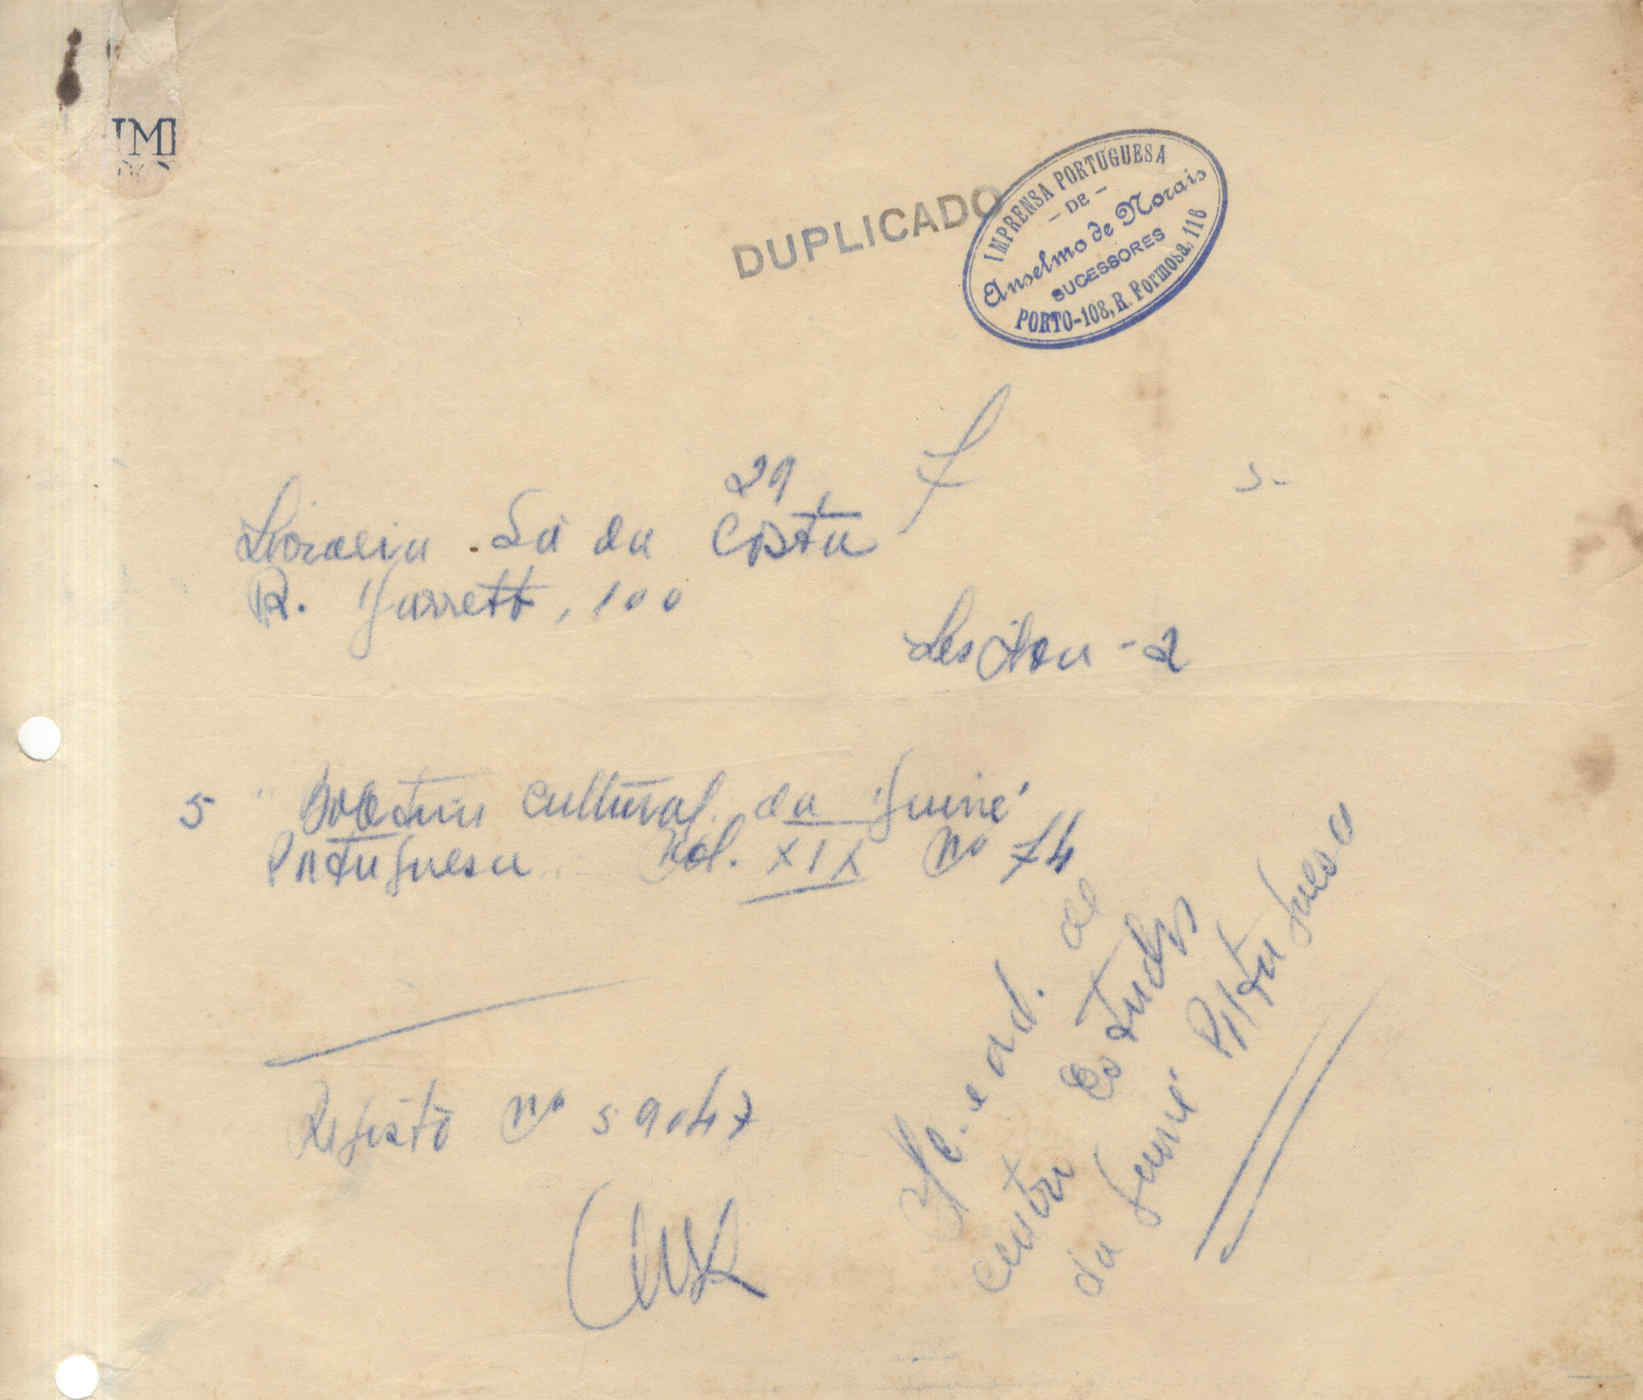 DUPLICADO
IMPRENSA PORTUGUESA
- DE -
Anselmo de Morais
SUCESSORES
PORTO-108, R. Formosa, 116
29 7 5-
Livraria Sá da Costa
R. Garrett, 100
Lisboa - 2
5 Boletim Cultural da Guiné
Portuguesa Vol. XIX nº 74
Registo nº 59047
c. e ad. de
Centro Estudos
da Guiné Portuguesa